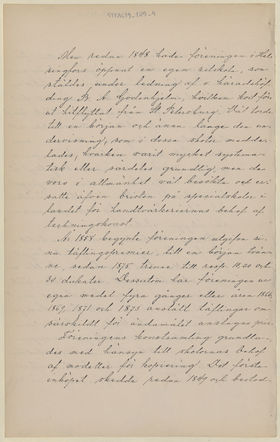 Men redan 1868 hade föreningen i Hel-
singfors öppnat en egen ritskola, som
ställdes under ledning af v. häradshöf-
ding B. A. Godenhjelm, hvilken kort för-
ut hitflyttat från St. Petersburg. Väl torde
till en början och ännu länge den un-
dervisning, som i dessa skolor meddela-
kades, hvarken varit mycket systema-
tisk eller särdeles grundlig, men de
voro i allmänhet väl besökta och er-
satte äfven bristen på specialskolor i
landet för landtbrukarnas behof af
teckningskonst.
År 1858 begynte föreningen utgifva si-
na täflingspremier, till en början
ne, sedan 1875 trenne till resp.
dukater. Dessutom har föreningen ur
egna medel fyra gånger eller åren 1866,
1869, 1871 och 1873 anstält täflingar om
särskildt för ändamålet anslagna pris.
Föreningens konstsamling grundla-
des med hänsyn till skolornas behof
af modeller för kopiering. Det första
inköpet skedde redan 1849 och bestod